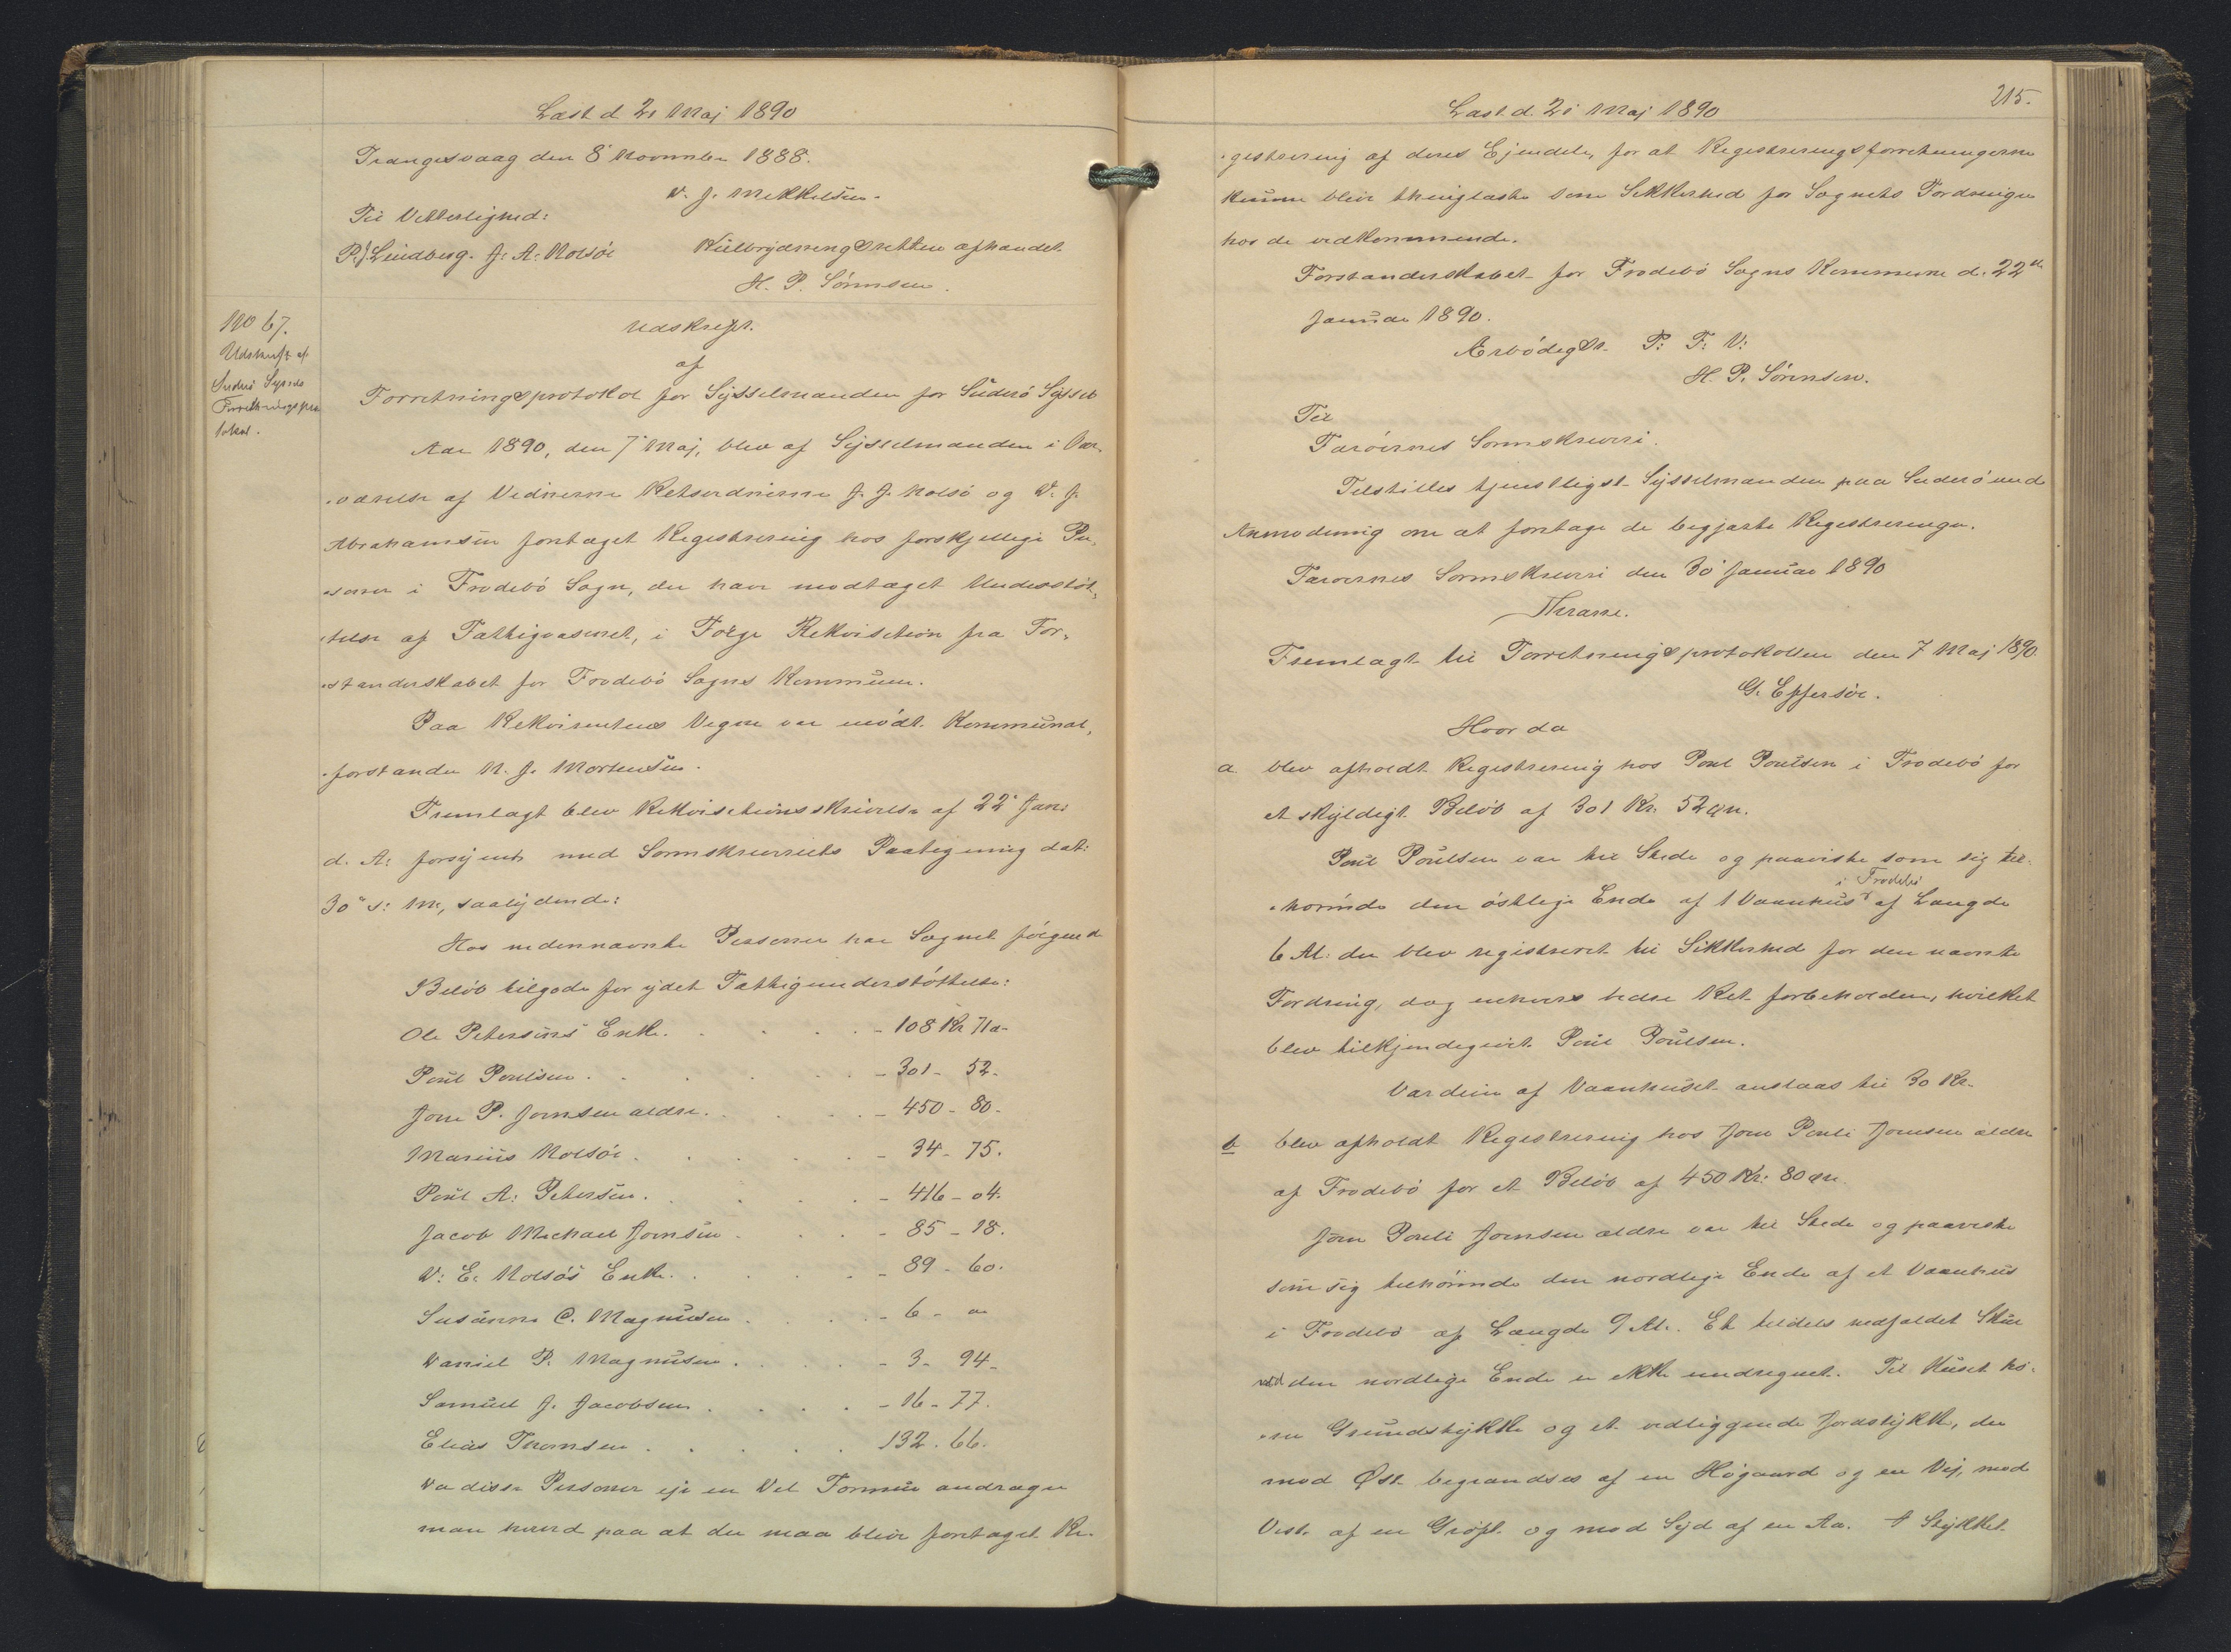 Læst d 21 Maj 1890
Trangesvaag den 8' November 1888.
D. J. Mikkelsen.
Til Vitterlighed:
P. J. Lindberg. J. A. Nolsöe
Kulbrydningsretten afhændet
H. P. Sörensen.
No 67.
Udskrift af
Suderö Syssels
Forretningspro
tokol.
Udskrift.
af
Forretningsprotokol for Sysselmanden for Suderö Syssel
Aar 1890, den 7' Maj, blev af Sysselmanden i Over-
værelse af Vidnerne Retsvidnerne J. J. Nolsö og D. J.
Abrahamsen foretaget Registrering hos forskjellige Per-
soner i Frodebö Sogn, der have modtaget Understöt-
telse af Fattigvæsenet, i Fölge Rekvisition fra For-
standerskabet for Frodebö Sogns Kommune.
Paa Rekvirentens Vegne var mödt Kommunal-
forstander N. J. Mortensen.
Fremlagt blev Rekvisitionsskrivelse af 22' Jan:
d. A: forsynet med Sorenskriveriets Paategning dat:
30" s: M:, saalydende:
Hos nedennævnte Personer har Sognet fölgende
Belöb tilgode for ydet Fattigunderstöttelse:
Ole Petersens Enke. - 108 Kr 71 ø
Poul Poulsen. - 301 - 52.
Joen P. Joensen ældre. - 450 - 80.
Marius Nolsöe. - 34 - 75.
Poul A: Petersen. - 416 - 04.
Jacob Michael Joensen. - 85 - 18.
D: E: Nolsös Enke. - 89 - 60.
Susanne C. Magnusen. - 6 - "
Daniel P. Magnusen. - 3 - 94
Samuel J. Jacobsen. - 16 - 77.
Elias Thomsen. 132. 66.
Da disse Personer eje en Del Formue andrager
man herved paa at der maa blive foretaget Re-
Læst d. 21 Maj 1890
215.
gistrering af deres Ejendele, for at Registreringsforretningerne
kunne blive thinglæste som Sikkerhed for Sognets Fordringer
hos de vedkommende.
Forstanderskabet for Frodebö Sogns Kommune d. 22de
Januar 1890.
Ærbödigst P: F: V:
H. P. Sörensen.
Til
Færöernes Sorenskriveri.
Tilstilles tjenstligst Sysselmanden paa Suderö med
Anmodning om at foretage de begjærte Registreringer.
Færoernes Sorenskriveri den 30' Januar 1890
Thrane.
Fremlagt til Forretningsprotokollen den 7 Maj 1890
G. Effersöe.
Hvor da
a. blev afholdt Registrering hos Poul Poulsen i Frodebö for
et skyldigt Belöb af 301 Kr. 52 øre.
Poul Poulsen var til Stede og paaviste som sig til-
i Frodebö
hörende den östlige Ende af 1 Vaanhus af Længde
6 Al. der blev registreret til Sikkerhed for den nævnte
Fordring, dog enhvers bedre Ret forbeholden, hvilket
blev tilkjendegivet Poul Poulsen.
Værdien af Vaanhuset anslaas til 30 Kr.
b blev afholdt Registrering hos Joen Pouli Joensen ældre
af Frodebö for et Belöb af 450 Kr: 80 øre.
Joen Pouli Joensen ældre var til Stede og paaviste
som sig tilhörende den nordlige Ende af et Vaanhus
i Frodebö af Længde 9 Al. Et tildels nedfaldet Skur
ved den nordlige Ende er ikke medregnet. Til Huset hö-
rer Grundstykke og et vedliggende Jordstykke, der
mod Øst begrændses af en Högaard og en Vej, mod
Vest af en Gröft og mod Syd af en Aa. Stykket